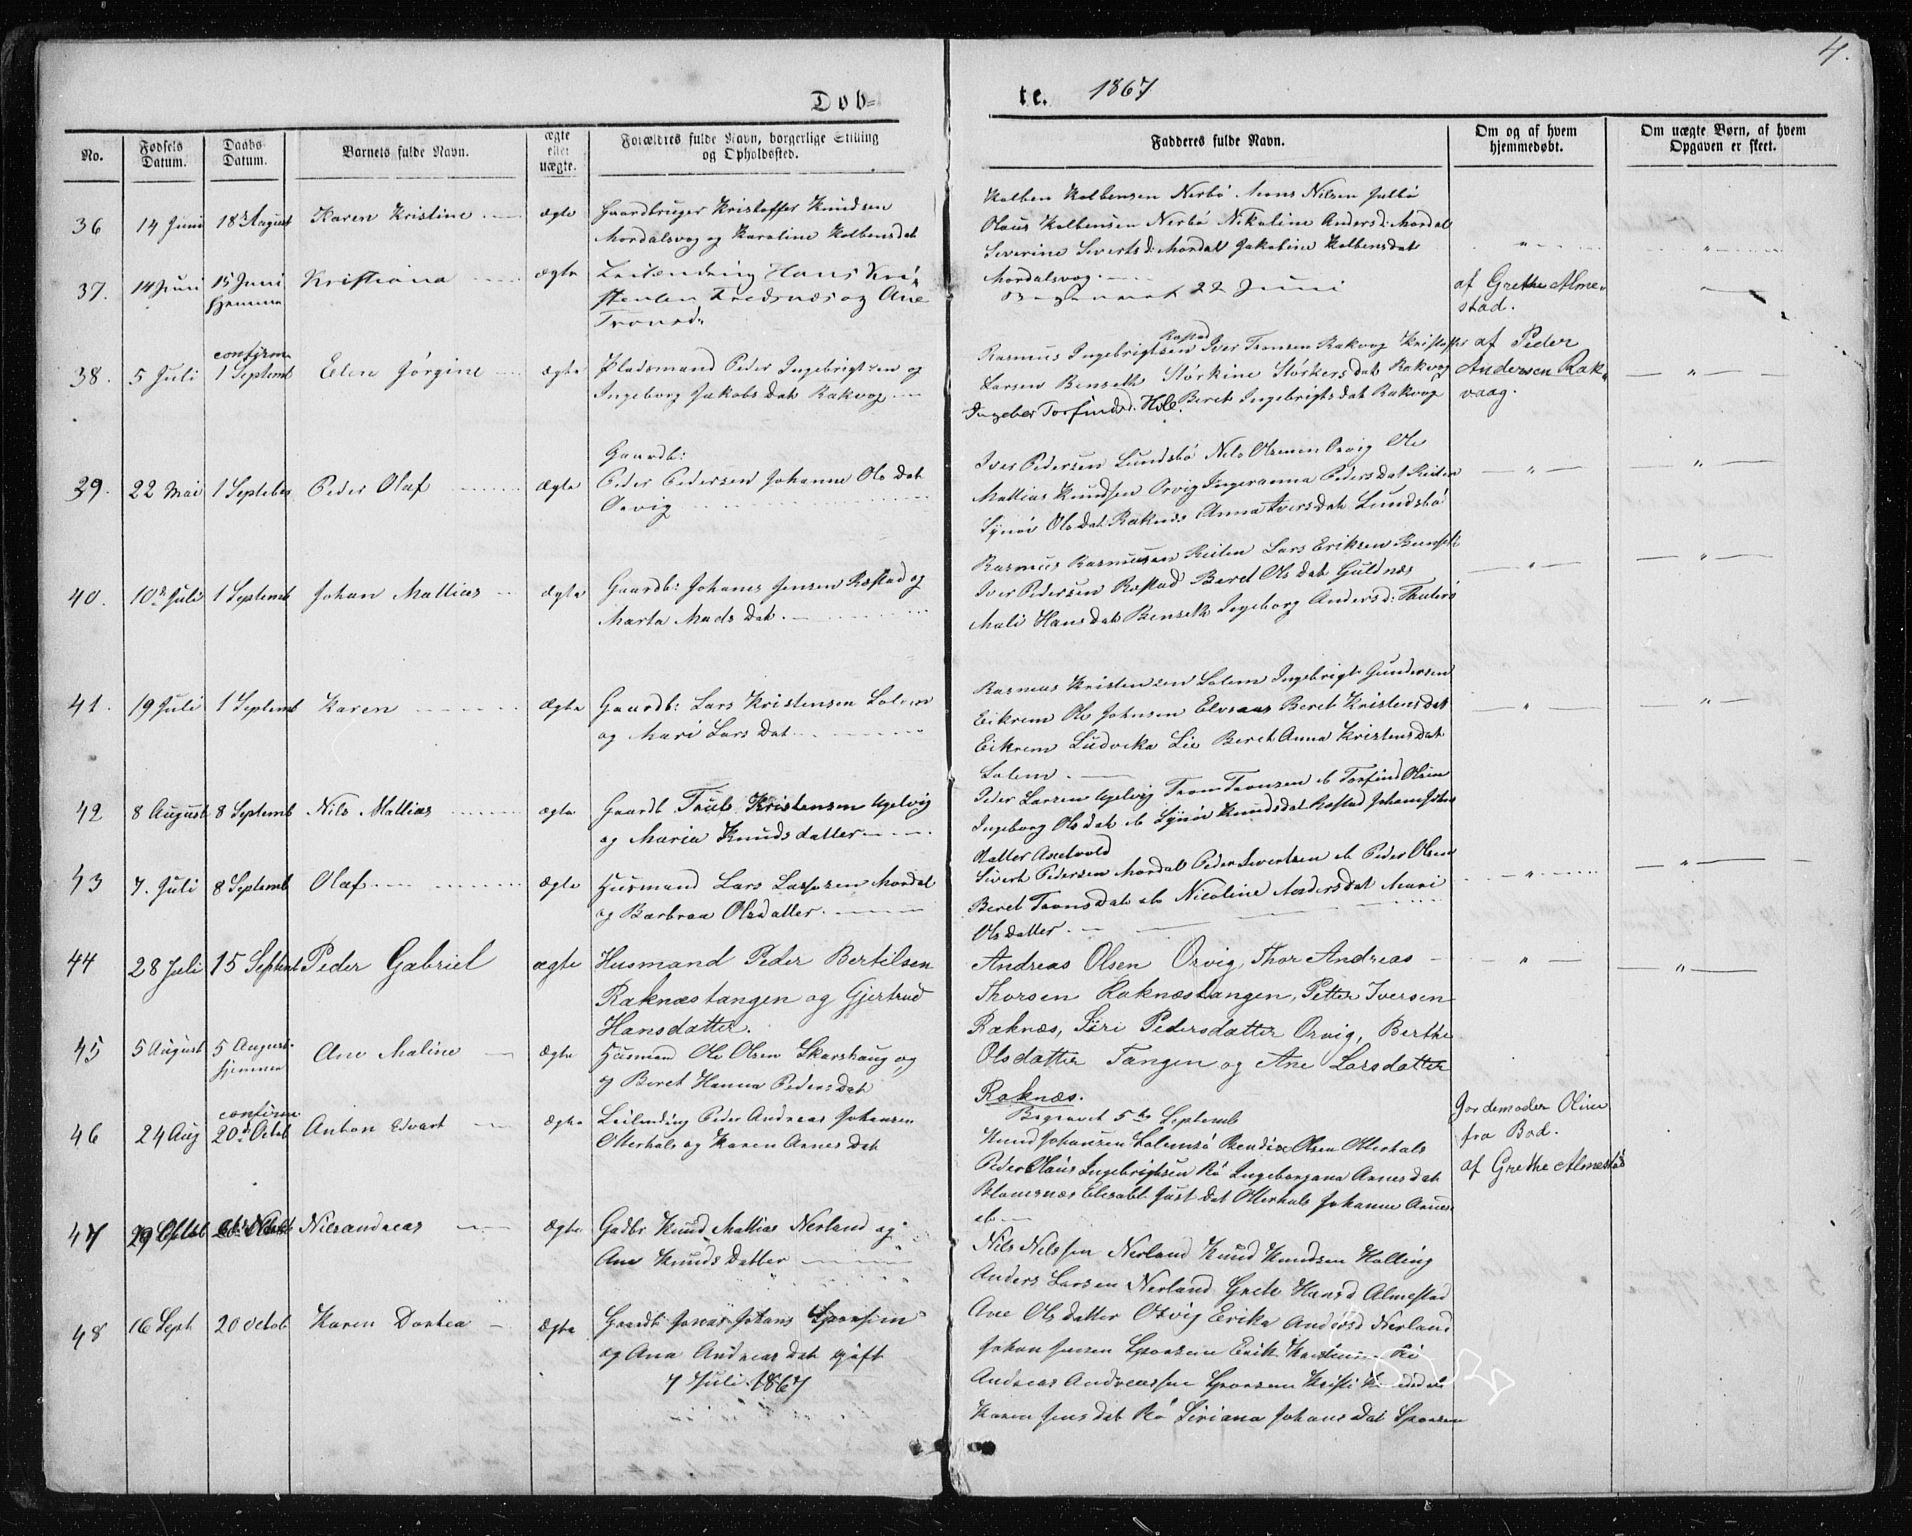 4.
Døb-
te. 1867
No.
Fødsels Datum.
Daabs Datum.
Barnets fulde Navn.
ægte eller uægte.
Forældres fulde Navn, borgerlige Stilling og Opholdssted.
Fadderes fulde Navn.
Om og af hvem hjemmedøbt.
Om uægte Børn, af hvem Opgaven er skeet.
36 14 Juni 18de August Karen Kristine ægte Gaardbruger Kristoffer Knudsen
Mordalsvog og Karoline Kolbensdat
Kolben Kolbensen Nerbø Mons Nilsen Julbø
Olaus Kolbensen Nerbø Nikoline Andersd: Mordal
Severine Sivertsd: Mordal Jakobine Kolbensdat
Mordalsvog
37. 14 Juni 15 Juni Hjemme Kristiana ægte Leilending Hans Kri-
stensen og Ane
Tronsd.
Begravet 22 Juni
af Grethe Alme-
stad.
38. 5 Juli confirm 1 Septemb Elen Jørgine ægte Pladsmand Peder Ingebrigtsen og
Ingeborg Jakobs Dat Rakvog
Rasmus Ingebrigtsen Røstad Iver Tronsen Rakvog Kristoffer
Larsen Benseth Størkine Størkersdat Rakvog
Ingebor Torfindsd. Hol. Beret Ingebrigtsdat Rakvog
af Peder
Andersen Rak-
vaag.
39. 22 Mai 1 September Peder Olaf ægte Gaardb:
Peder Pedersen Johanne Ols Dat
Orvig
Iver Pedersen Lundsbø Nils Olsen Orvig Ole
Mattias Knudsen Orvig Ingeranna Pedersdat Reiten
Synøv Olsdat Raknes Anna Iversdat Lundsbø
40. 10de Juli 1 Septemb Johan Mattias ægte Gaardb: Johanes Jensen Røstad og
Marta Mads Dat.
Rasmus Rasmussen Reiten Lars Eriksen Benseth
Iver Pedersen Røstad Beret Olsdat Guldnæs
Mali Hansdat Benseth Ingeborg Andersd:
41. 19 Juli 1 Septemb Karen ægte Gaardb: Lars Kristensen Solem
og Mari Lars Dat
Rasmus Kristensen Solem Ingebrigt Gundersen
Eikrem Ole Johnsen Elvsaas Beret Kristensdat
Eikrem Ludvika Lie Beret Anna Kristensdat
Solem
42 8 August 8 Septemb Nils Mattias ægte Gaardb Truls Kristensen Ugelvig
og Maria Knudsdatter
Peder Larsen Ugelvig Tron Tronsen ib Torfind Olsen
Ingeborg Olsdat ib Synøv Knudsdat Røstad Johan
datter
43 7. Juli 8 Septemb Olaf ægte Husmand Lars Larsen Mordal
og Barbraa Olsdatter
Sivert Pedersen Mordal Peder Sivertsen ib Peder Olsen
Beret Tronsdat ib Nicoline Andersdat Mari
Olsdatter
44 28 Juli 15 Septemb Peder Gabriel ægte Husmand Peder Bertilsen
Raknæstangen og Gjertrud
Hansdatter.
Andreas Olsen Orvig, Thor Andreas
Thorsen Raknæstangen, Petter Iversen
Raknæs, Siri Pedersdatter Orvig, Berthe
Olsdatter Tangen og Ane Larsdatter
Raknæs.
45 5 August 5 August. Hjemme Ane Maline ægte Husmand Ole Olsen Skarshaug og
og Beret Hanna Pedersdat
Begravet 5te Septemb
Gordemoder Oline
fra Bod.
46 24 Aug confirm 20de Octob Anton Edvart ægte Leilending Peder Andreas Johansen
Otterhals og Karen Arnes Dat
Knud Johansen Solemsø Bendix Olsen Otterhals
Peder Olaus Ingebrigtsen Rø Ingeborgana Arnesdat
Blomsnæs Elisabt Just Dat Otterhals Johanne Arnes
ib
af Grethe Almestad
47 29 Nilsandreas ægte Gadbr Knud Mattias Nerland og
Ane Knuds Datter
Nils Nilssen Nerland Knud Knudsen Kolling
Anders Larsen Nerland Grete Hansd Almestad
Ane Olsdatter Orvig Erika Andersd Nerland
48 16 Sept 20 Octob Karen Dortea ægte Gaardb: Jonas Johans
og Ana Andreas Dat gift
7 Juli 1867
Johan Jensen Erik Rø
Andreas Andreassen Kristi
Karen Jensdat Rø Siriana Johansdat